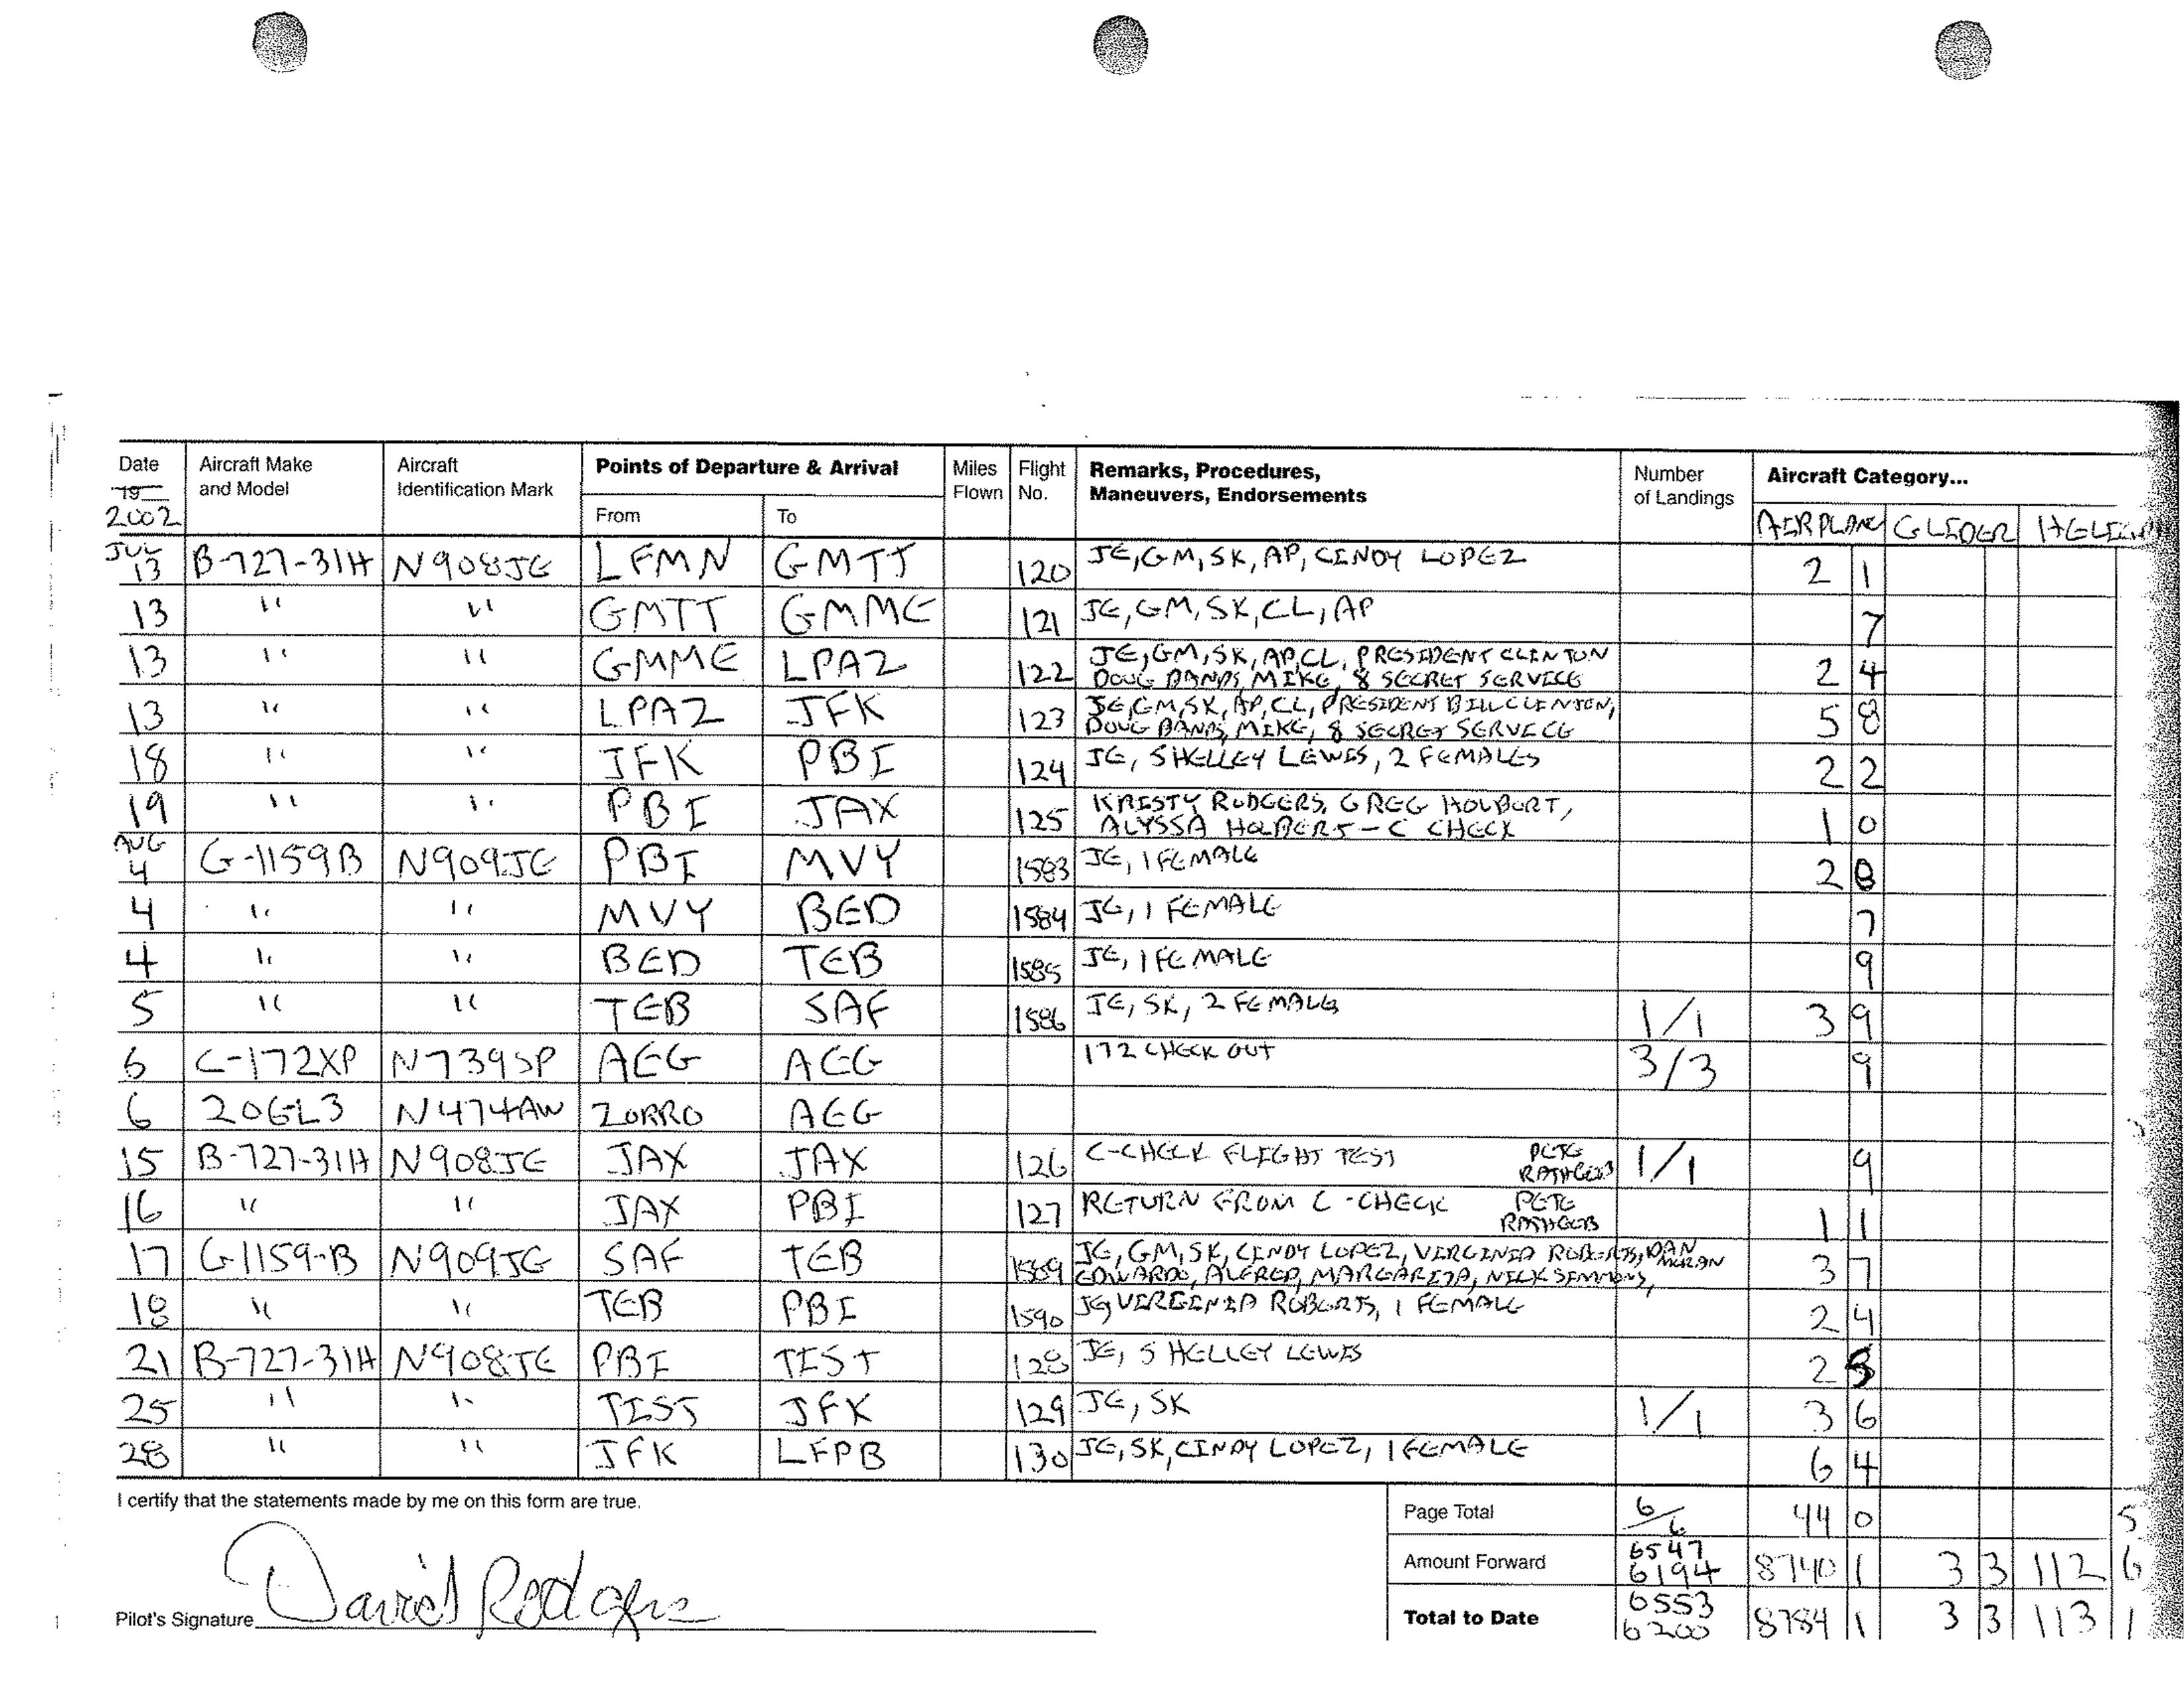 Date Aircraft Make Aircraft Points of Departure & Arrival Miles Flight Remarks, Procedures, Number Aircraft Category...
19 and Model Identification Mark Flown No. Maneuvers, Endorsements of Landings
2002 From To AIRPLANE GLIDER
JUL
13 B-727-31H N908JE LFMN GMTT 120 JE, GM, SK, AP, CINDY LOPEZ 2 1
13 " " GMTT GMME 121 JE, GM, SK, CL, AP 7
13 " " GMME LPAZ 122 JE, GM, SK, AP, CL, PRESIDENT CLINTON
DOUG BANDS, MIKE, 8 SECRET SERVICE 2 4
13 " " LPAZ JFK 123 JE, GM, SK, AP, CL, PRESIDENT BILL CLINTON,
DOUG BANDS, MIKE, 8 SECRET SERVICE 5 8
18 " " JFK PBI 124 JE, SHELLEY LEWIS, 2 FEMALES 2 2
19 " " PBI JAX 125 KRISTY RODGERS, GREG HOLBERT,
ALYSSA HOLBERT - C CHECK 1 0
AUG
4 G-1159B N909JE PBI MVY 1583 JE, 1 FEMALE 2 8
4 " " MVY BED 1584 JE, 1 FEMALE 7
4 " " BED TEB 1585 JE, 1 FEMALE 9
5 " " TEB SAF 1586 JE, SK, 2 FEMALES 1/1 3 9
6 C-172XP N739SP AEG AEG 172 CHECK OUT 3/3 9
6 206L3 N474AW ZORRO AEG
15 B-727-31H N908JE JAX JAX 126 C-CHECK FLIGHT TEST PETE RATHGEB 1/1 9
16 " " JAX PBI 127 RETURN FROM C-CHECK PETE RATHGEB 1 1
17 G-1159-B N909JE SAF TEB 1589 JE, GM, SK, CINDY LOPEZ, VIRGINIA ROBERTS, DAN MORAN
EDWARDO, ALFRED, MARGARITA, NICK SIMMONS, 3 7
18 " " TEB PBI 1590 JE, VIRGINIA ROBERTS, 1 FEMALE 2 4
21 B-727-31H N908JE PBI TIST 128 JE, SHELLEY LEWIS 2
25 " " TIST JFK 129 JE, SK 1/1 3 6
28 " " JFK LFPB 130 JE, SK, CINDY LOPEZ, 1 FEMALE 6 4
I certify that the statements made by me on this form are true.
Page Total 6/6 44 0 5
Amount Forward 6547 6194 8740 1 3 3 112 6
Total to Date 6553 6200 8784 1 3 3 113 1
Pilot's Signature David Rodgers